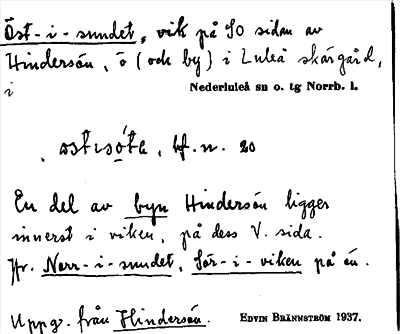 Öst-i-sundet, vik på SO sidan av
Hindersön, ö (och by) i Luleå skärgård,
i Nederluleå sn o. tg Norrb. l.
bf. n. 20
En del av byn Hindersön ligger
innerst i viken, på dess V. sida.
Jfr. Norr-i-sundet, Sör-i-viken på ön.
Uppg. från Hindersön. EDVIN BRÄNNSTRÖM 1937.